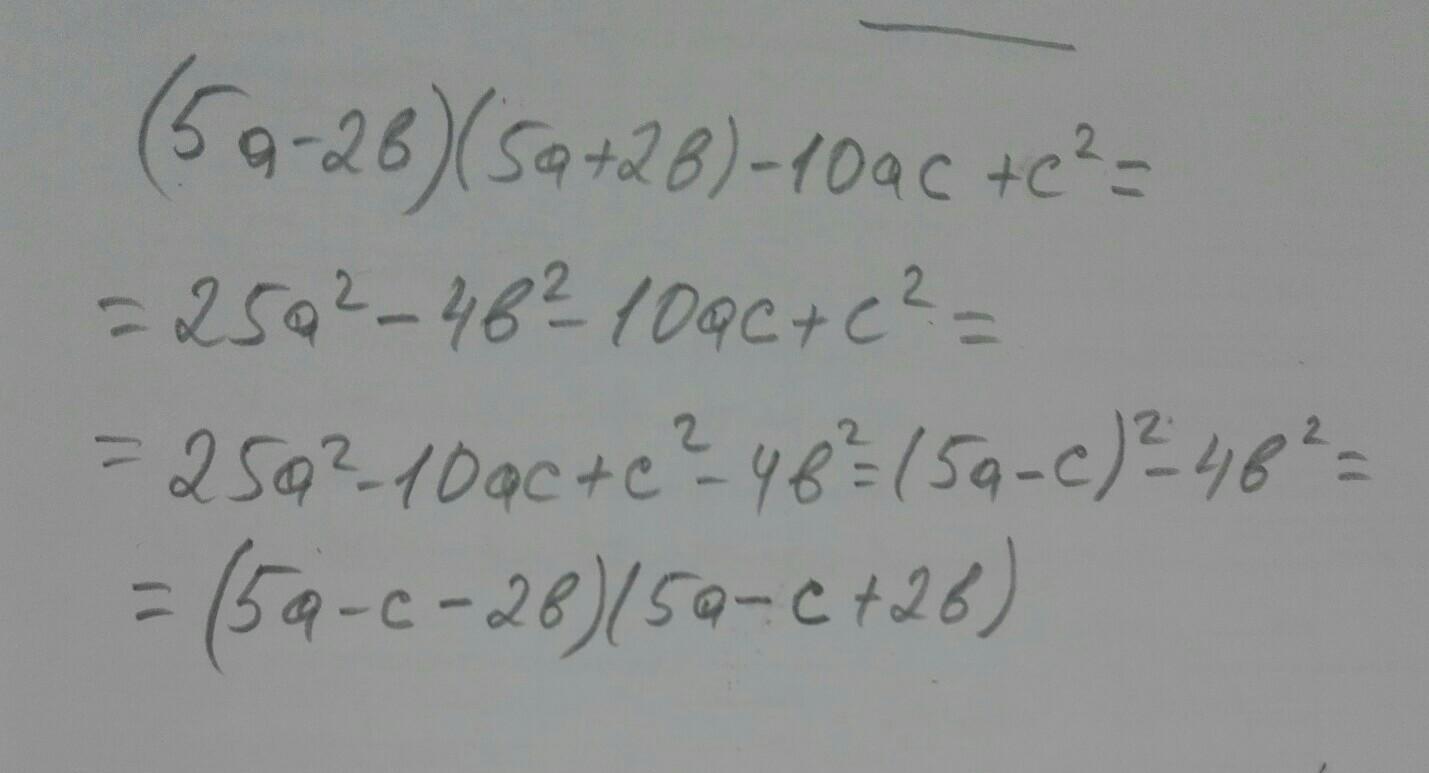 (5a-2в)(5a+2в)-10ac+c²=
=25a²-4в²-10ac+c²=
=25a²-10ac+c²-4в²=(5a-c)²-4в²=
=(5a-c-2в)(5a-c+2в)